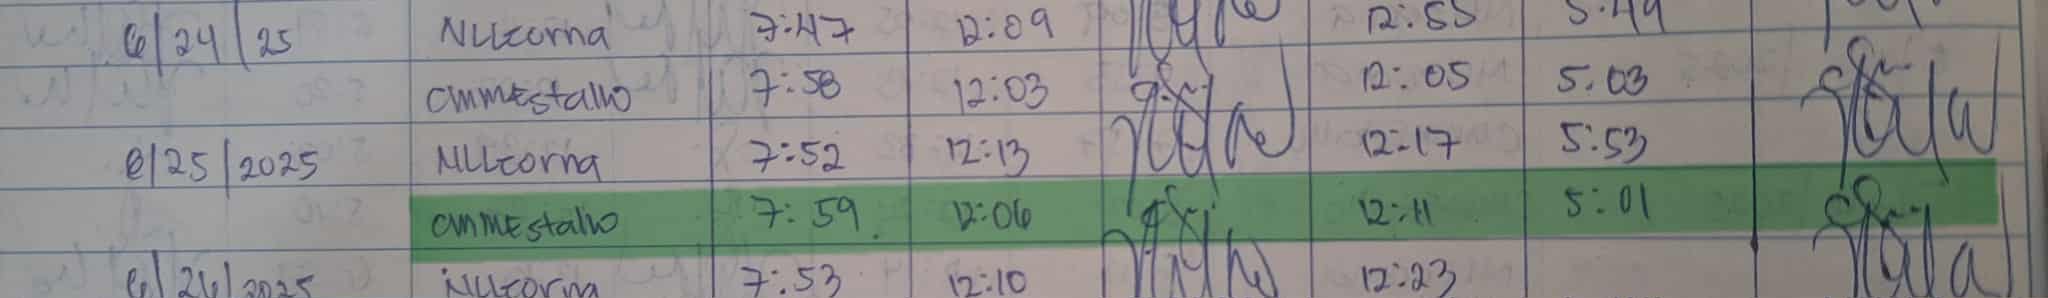 6/24/25 NLLcorna 7:47 12:09 12:55 5:49
CMMEstallo 7:58 12:03 12:05 5:03
6/25/2025 NLLcorna 7:52 12:13 12:17 5:53
CMMEstallo 7:59 12:06 12:11 5:01
6/26/2025 NLLcorna 7:53 12:10 12:23